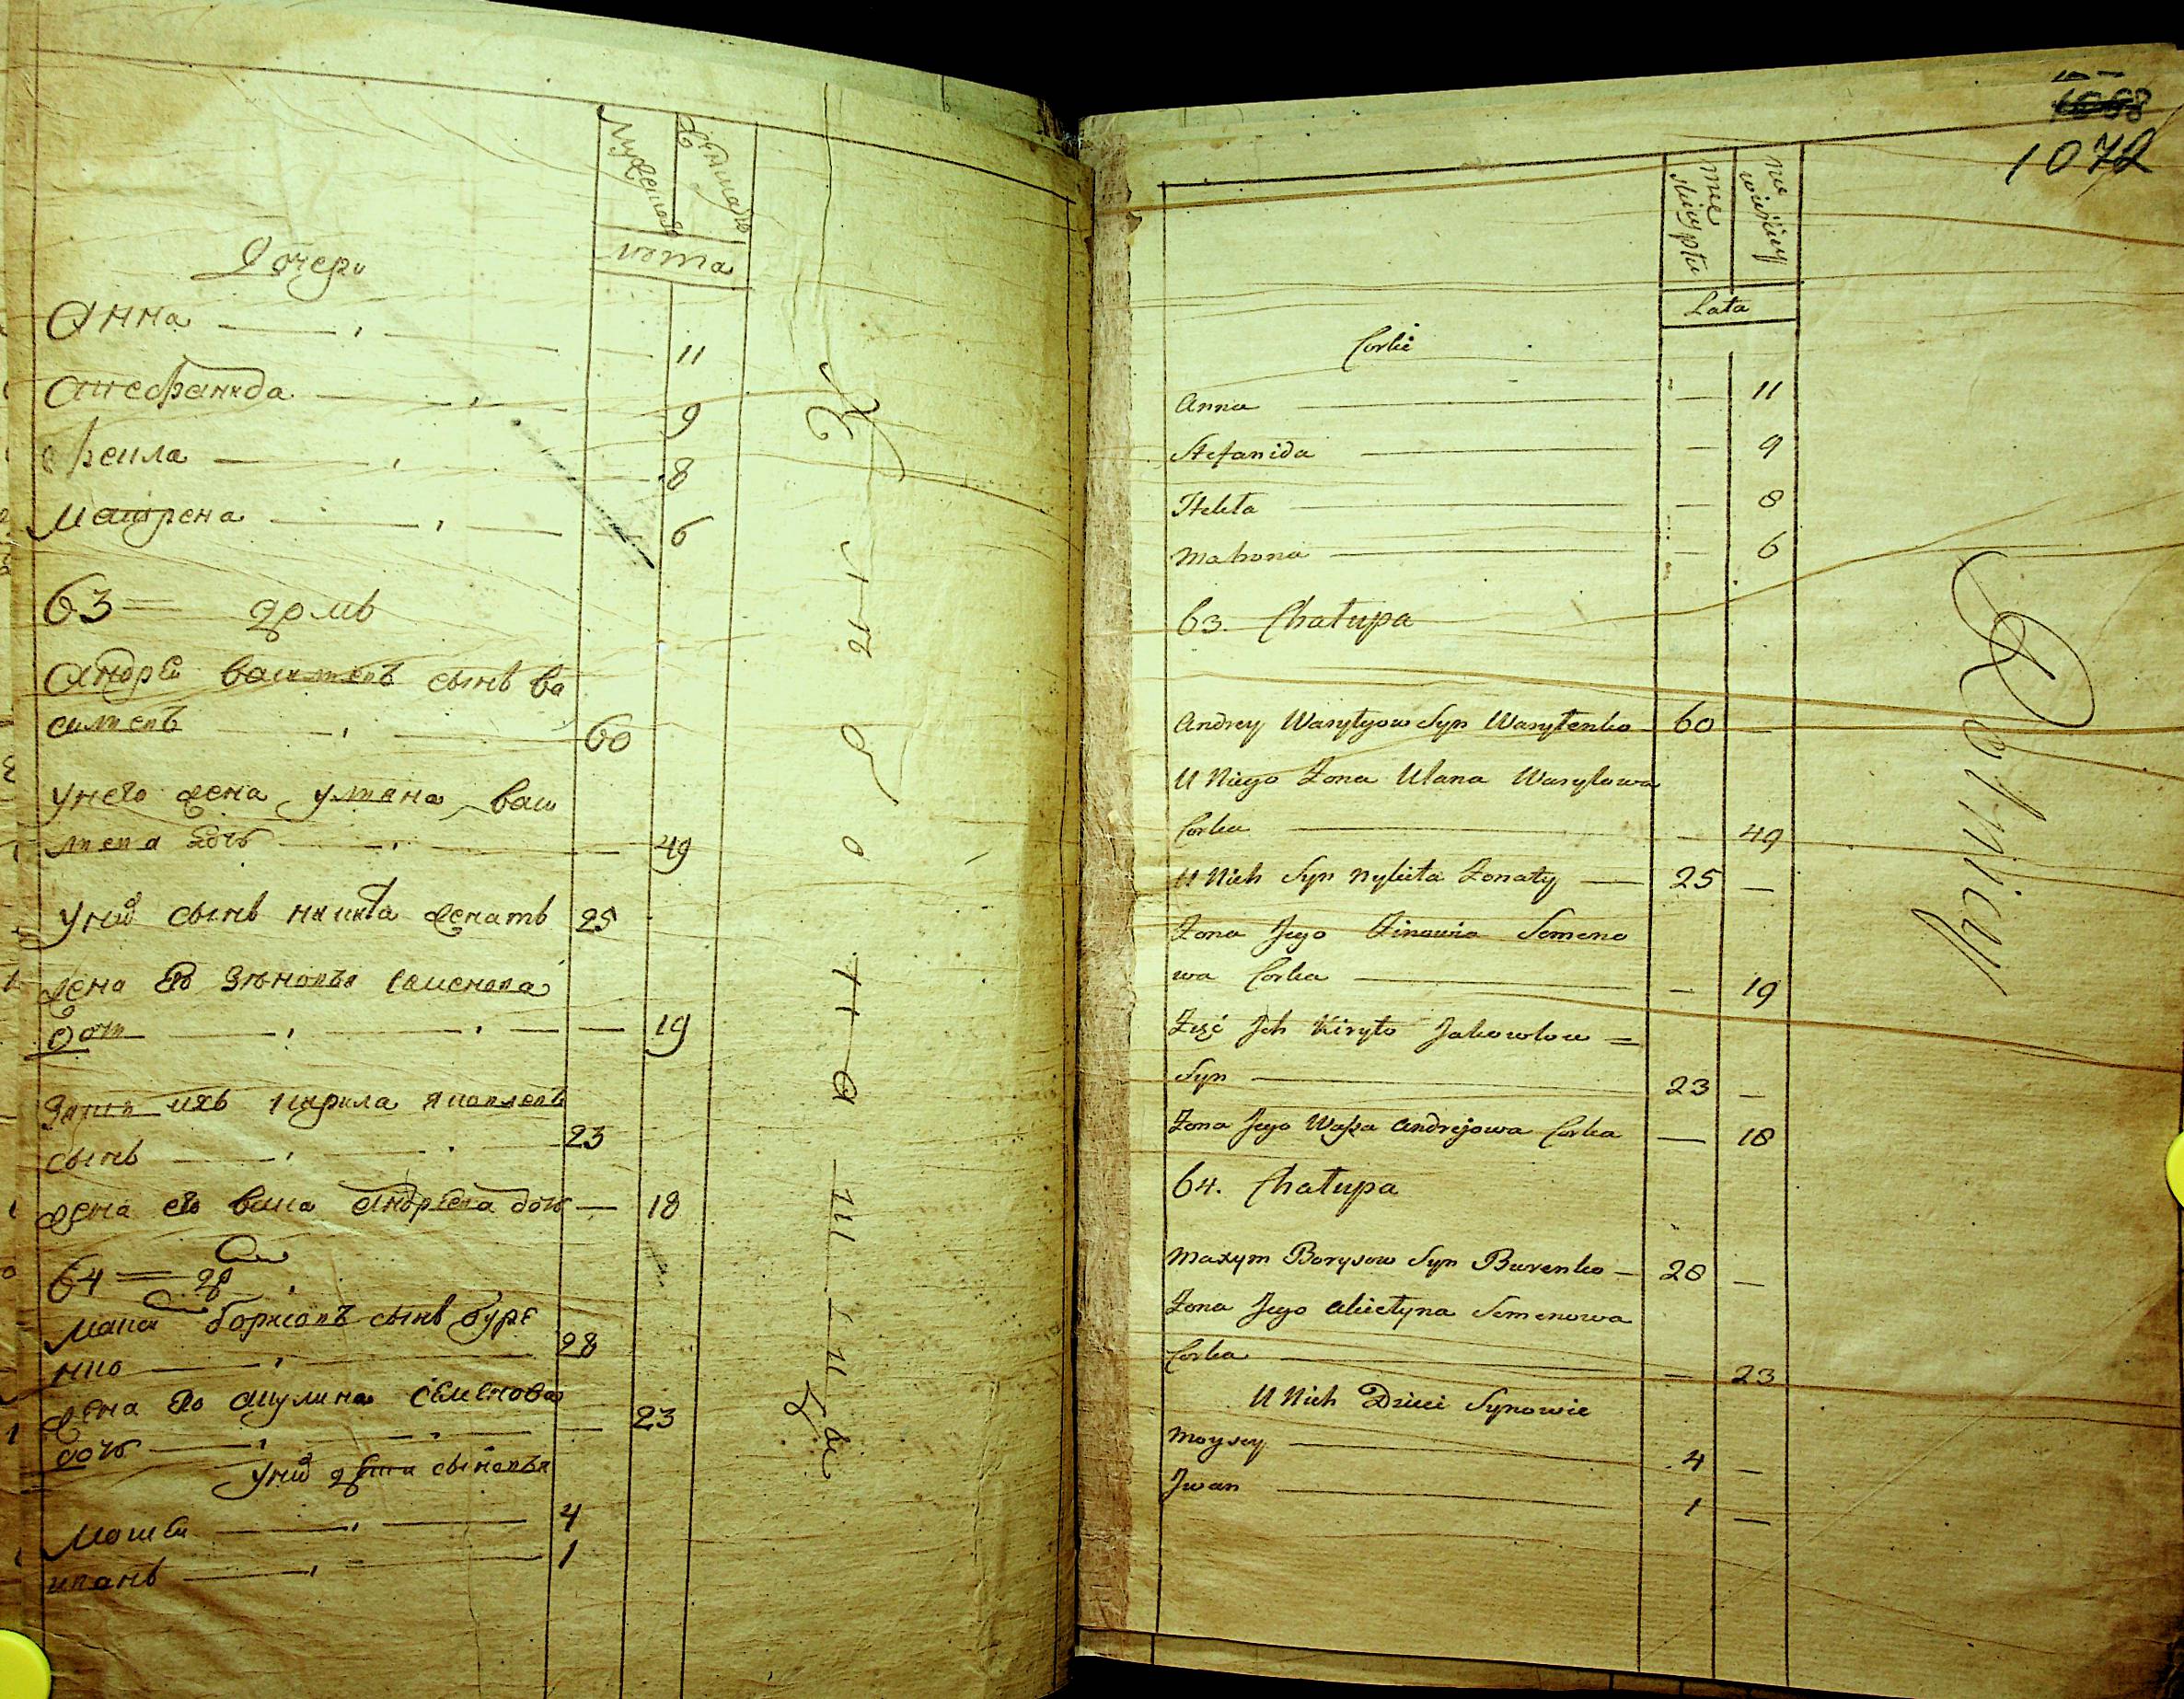 мужеска
женска
лета
Дочери
Анна 11
Стефанида 9
Фекла 8
Матрена 6
63 = домъ
Андрей василевъ сынъ ва
силевъ 60
унего жена уляна васи
лева дочь 49
унихъ сынъ никита женатъ 25
жена его зѣновья семенова
дочь 19
зять ихъ кирила яковлевъ
сынъ 23
жена его васа андреева дочь — 18
64 =
борисовъ сынъ буре
нко 28
жена его акулина семенова
дочь 23
унихъ дети сыновья
4
иванъ 1
1072
męskiey płci
Lata
Corki
Anna — 11
Stefanida — 9
Tekla — 8
Matrona — 6
63. Chałupa
Andrey Wasylyow Syn Wasylenko 60 —
U Niego Zona Ulana Wasylowa
Corka — 49
U Nich Syn Nykita Zonaty 25 —
Zona Jego Zinowia Semeno
wa Corka — 19
Zięć Jch Kiryło Jakowlow =
Syn 23 —
Zona Jego Wassa Andrejowa Corka — 18
64. Chałupa
Maxym Borysow Syn Burenko 28 —
Zona Jego Akietyna Semenowa
Corka — 23
U Nich Dzieci Synowie
Moysey 4 —
Jwan 1 —